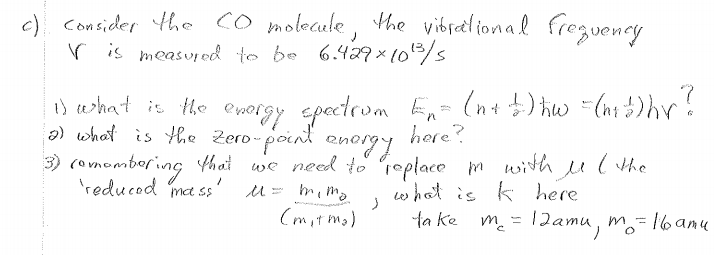 c) Consider the CO molecule, the vibrational frequency
ν is measured to be 6.429×10¹³/s
1) what is the energy spectrum Eₙ = (n + ½)ħω = (n+½)hν?
2) what is the zero-point energy here?
3) remembering that we need to replace m with μ (the
'reduced mass' μ = m₁m₂/(m₁+m₂), what is k here
take m_c = 12amu, m_o = 16amu